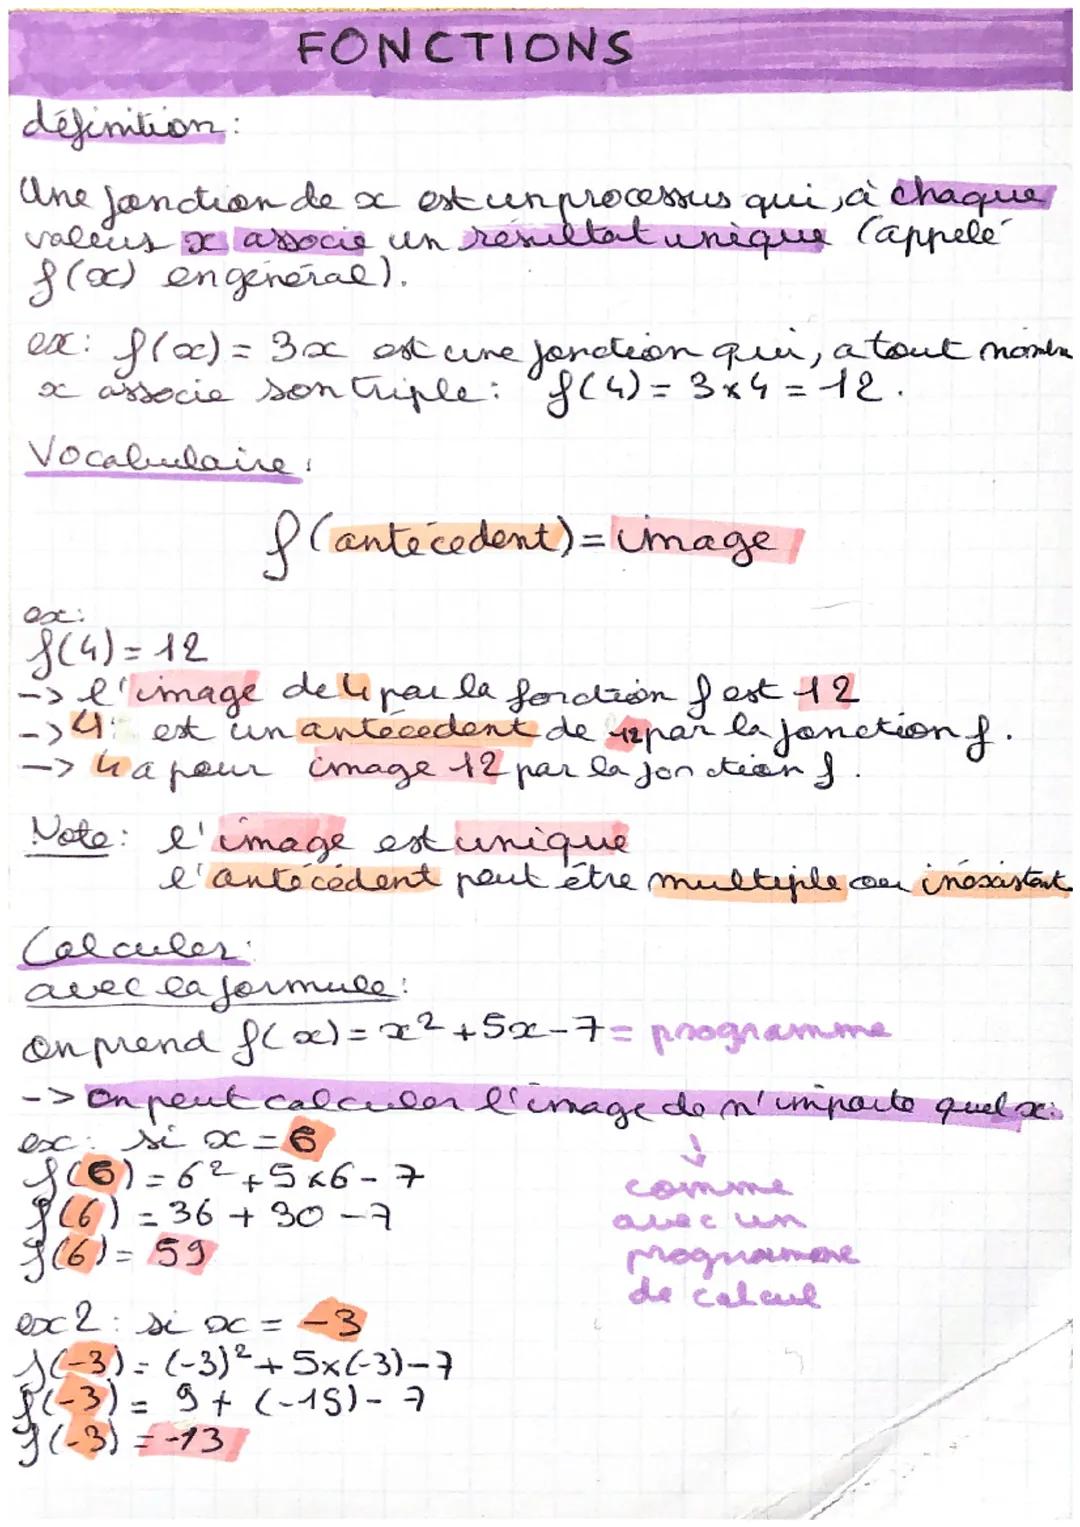 FONCTIONS
définition:
Une fonction de x est un processus qui, à chaque
valeurs x associe un résultat unique (appelé
f(x) en général).
ex: f(x) = 3x est une fonction qui, a tout nombre
x associe son triple: f(4) = 3x4 = 12.
Vocabulaire:
f(antécédent) = image
ex:
f(4) = 12
-> l'image de 4 par la fonction f est 12
-> 4 est un antécedent de 12 par la fonction f.
-> 4 a pour image 12 par la fonction f.
Note: l'image est unique
l'antécédent peut être multiple ou inéxistant
Calculer:
avec la formule:
On prend f(x) = x² + 5x - 7 = programme
-> On peut calculer l'image de n'importe quel x:
ex: si x = 6
f(6) = 6² + 5x6 - 7
f(6) = 36 + 30 - 7
f(6) = 59
↓
comme
avec un
programme
de calcul
ex2: si x = -3
f(-3) = (-3)² + 5x(-3) - 7
f(-3) = 9 + (-15) - 7
f(-3) = -13